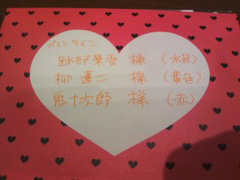 バレンタイン
跡部景吾 様 (水色)
柳 蓮二 様 (黄色)
鬼十次郎 様 (赤)